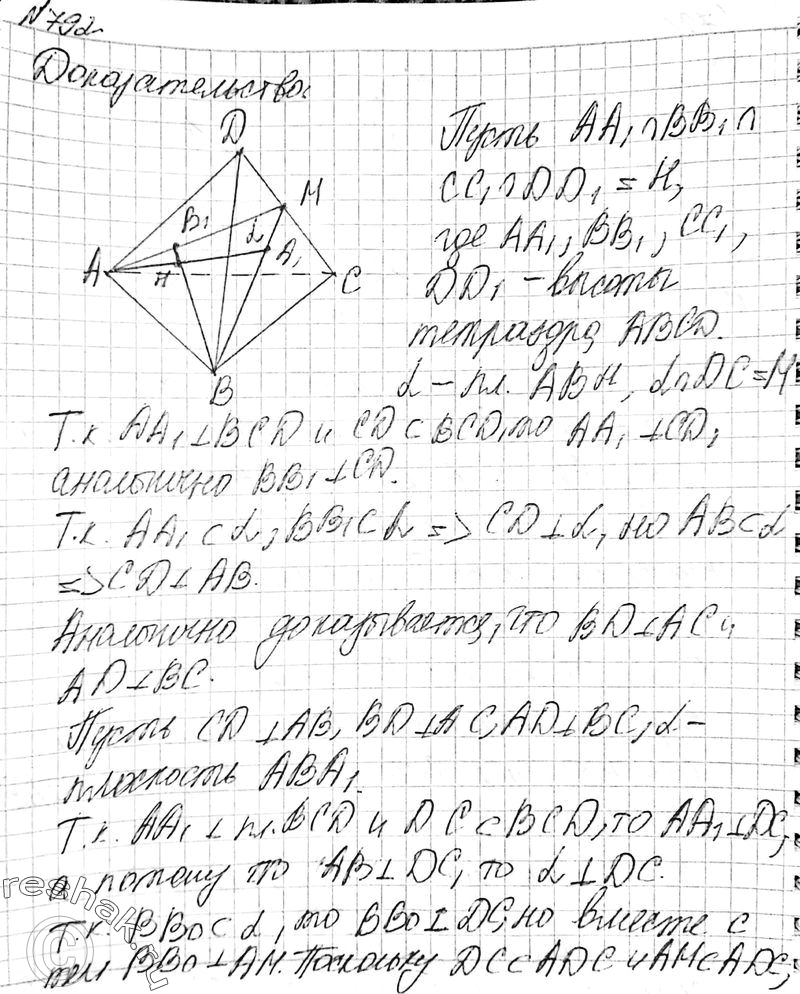 №792
Доказательство:
D
M
B₁
α
A₁
A
H
C
B
Пусть AA₁∩BB₁∩
CC₁∩DD₁ = H,
где AA₁, BB₁, CC₁,
DD₁ – высоты
тетраэдра ABCD.
α – пл. ABH, α∩DC=M
Т.к. AA₁⊥BCD и CD⊂BCD, то AA₁⊥CD,
аналогично BB₁⊥CD.
Т.к. AA₁⊂α, BB₁⊂α => CD⊥α, но AB⊂α
=> CD⊥AB.
Аналогично доказывается, что BD⊥AC и
AD⊥BC.
Пусть CD⊥AB, BD⊥AC, AD⊥BC, α–
плоскость ABA₁.
Т.к. AA₁⊥пл.BCD и DC⊂BCD, то AA₁⊥DC,
а потому то AB⊥DC, то α⊥DC.
Т.к. BB₀⊂α, то BB₀⊥DC, но вместе с
тем BB₀⊥AM. Поскольку DC⊂ADC и AM⊂ADC,
reshak.ru
©